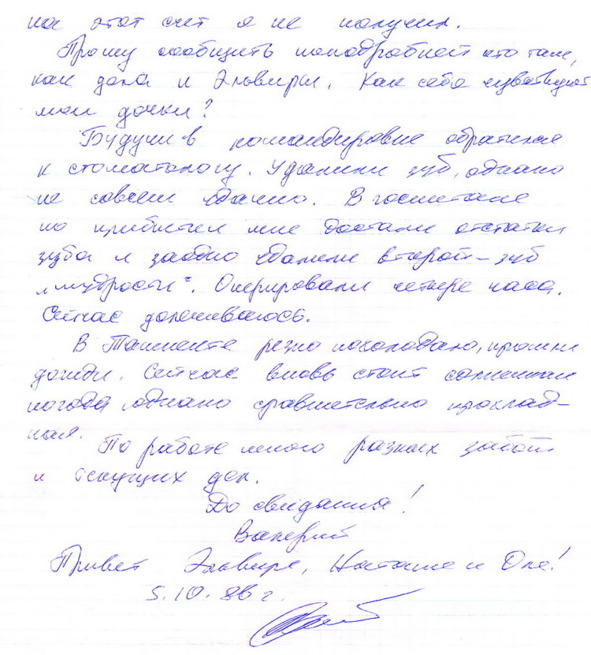 на этот счет я не получил.
Прошу сообщить поподробней кто там,
как дела и Эльвиры. Как себя чувствуют
мои дочки?
Будучи в командировке обратился
к стоматологу. Удалили зуб, однако
не совсем удачно. В госпитале
по прибытии мне достали остатки
зуба и заодно удалили второй – зуб
„мудрости“. Оперировали четыре часа.
Сейчас долечиваюсь.
В Ташкенте резко похолодало, прошли
дожди. Сейчас вновь стоит солнечная
погода, однако сравнительно прохлад-
ная.
По работе много разных забот
и текущих дел.
До свидания!
Валерий
Привет Эльвире, Наташе и Оле!
5.10.86 г.